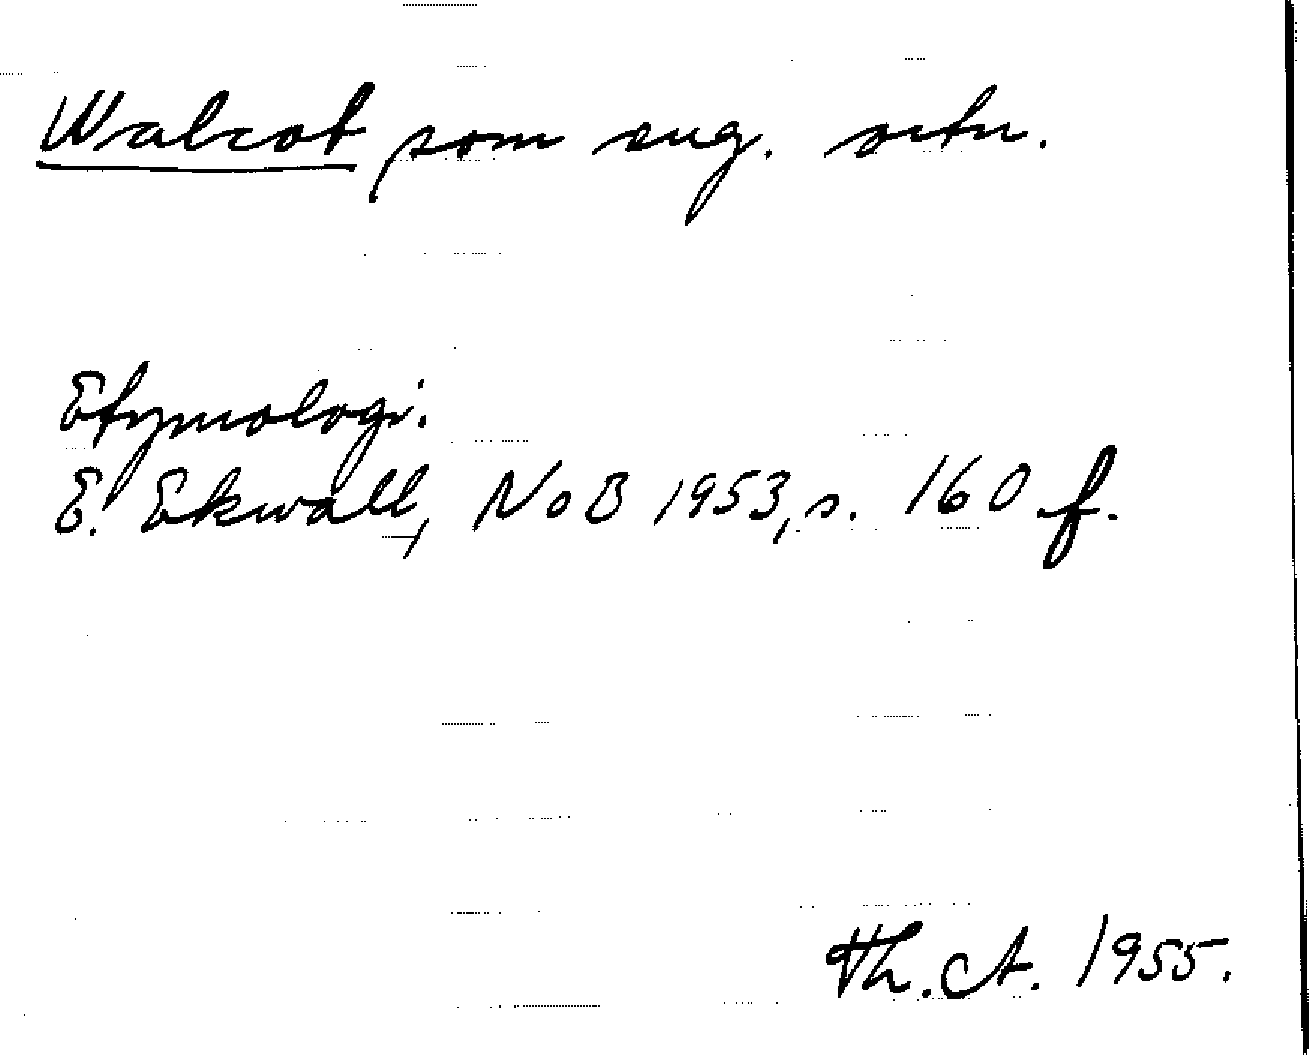 Walcot som eng. ortn.
Etymologi.
E. Ekwall, NoB 1953, s. 160 f.
Th. A. 1955.